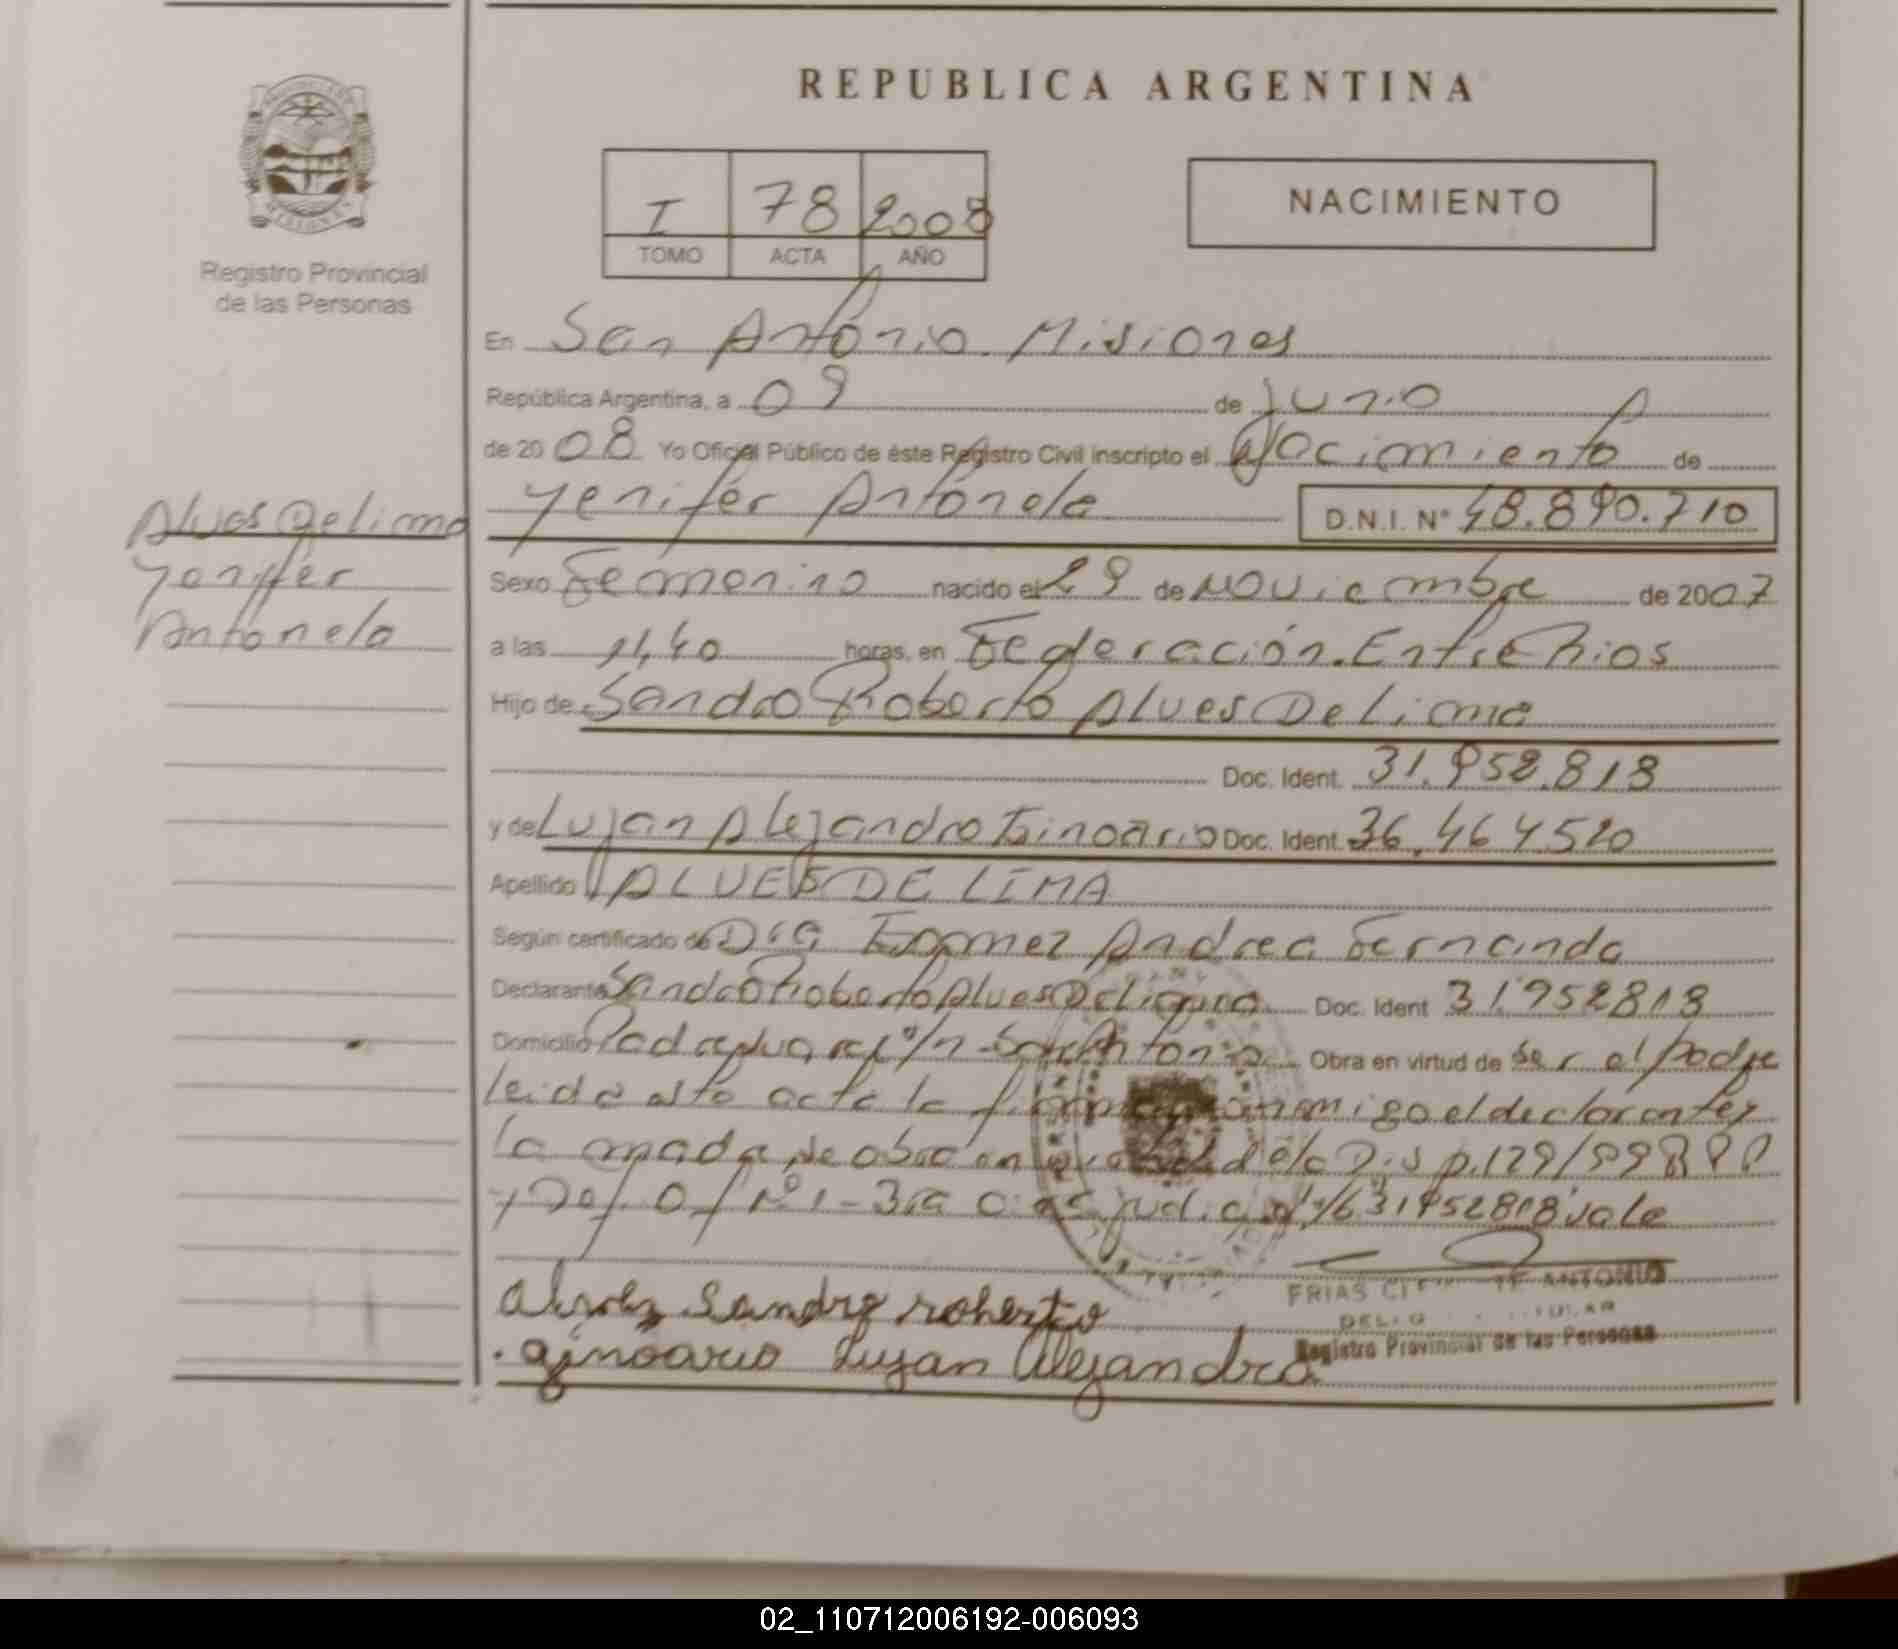 REPUBLICA ARGENTINA
Registro Provincial
de las Personas
I 78 2008
TOMO ACTA AÑO
NACIMIENTO
En San Antonio. Misiones
República Argentina, a 09 de junio
de 2008 Yo Oficial Público de éste Registro Civil inscripto el Nacimiento de
Yenifer Antonela D.N.I. Nº 48.890.710
Alves De Lima
Yenifer
Antonela
Sexo Femenino nacido el 29 de Noviembre de 2007
a las 11,40 horas, en Federación. Entre Rios
Hijo de Sandro Roberto Alves De Lima
Doc. Ident. 31.952.818
y de Lujan Alejandra Ginoario Doc. Ident. 36.464520
Apellido ALVES DE LIMA
Según certificado de Dra Andrea Fernanda
Declarante Sandro Roberto Alves De Lima Doc. Ident 31952818
Domicilio s/n San Antonio Obra en virtud de ser el padre
leida esta acta la firman conmigo el declarante y
la madre de obra en de la
31952818 vale
Alves Sandro roberto
ginoario Lujan Alejandra
FRIAS ANTONIO
Registro Provincial de las Personas
02_110712006192-006093